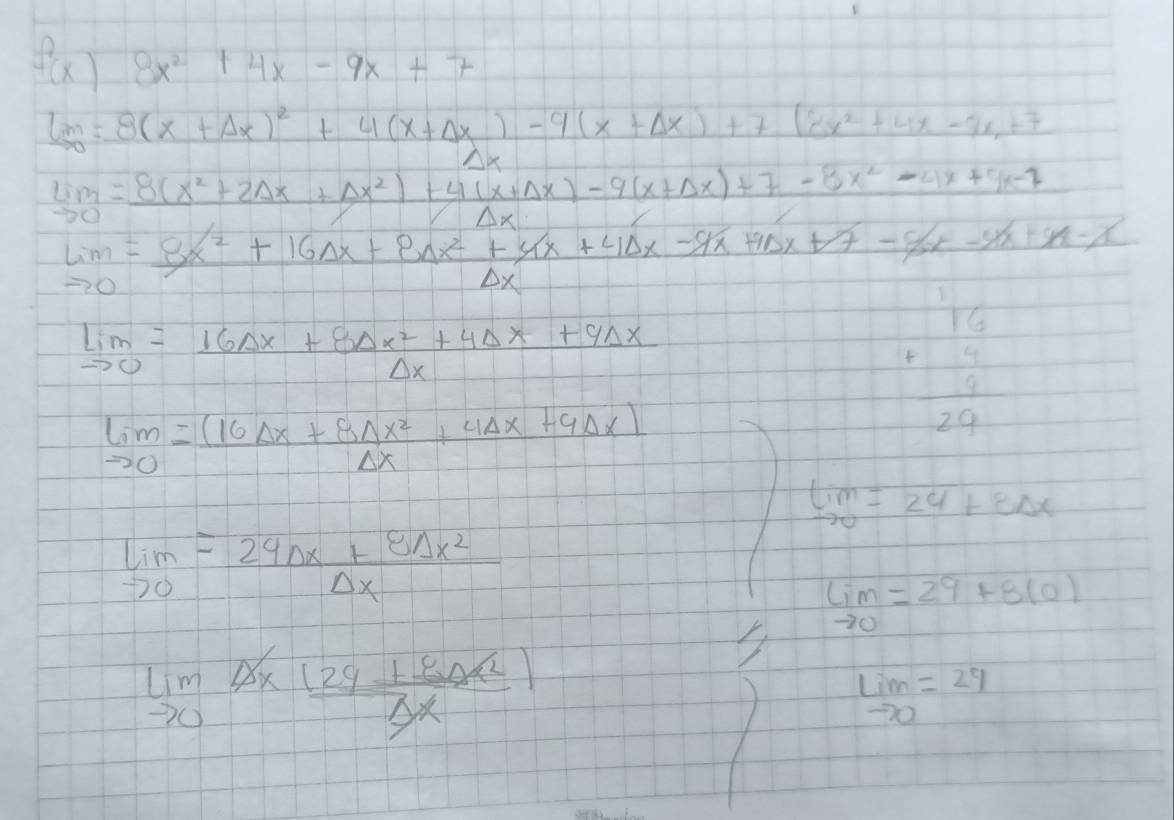 f(x) 8x² + 4x - 9x + 7
lim →0 = 8(x + Δx)² + 4(x + Δx) - 9(x + Δx) + 7 (8x² + 4x - 9x + 7 / Δx
lim →0 = 8(x² + 2Δx + Δx²) + 4(x + Δx) - 9(x + Δx) + 7 - 8x² - 4x + 9x - 7 / Δx
lim →0 = 8x² + 16Δx + 8Δx² + 4x + 4Δx - 9x + 9Δx + 7 - 8x - 4x + 9x - 7 / Δx
lim →0 = 16Δx + 8Δx² + 4Δx + 9Δx / Δx
lim →0 = (16Δx + 8Δx² + 4Δx + 9Δx) / Δx
lim →0 = 29Δx + 8Δx² / Δx
lim →0 Δx (29 + 8Δx²) / Δx
1
16
+ 4
9
29
lim →0 = 29 + 8Δx
lim →0 = 29 + 8(0)
lim →0 = 29